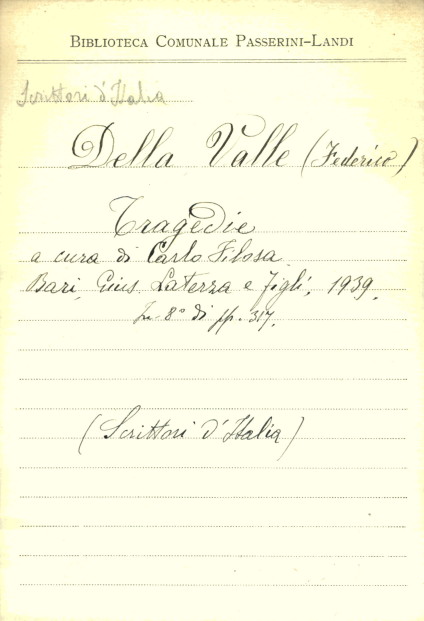 BIBLIOTECA COMUNALE PASSERINI-LANDI
Scrittori d'Italia
Della Valle (Federico)
Tragedie
a cura di Carlo Filosa.
Bari, Gius. Laterza e figli, 1939.
In-8° di pp. 317.
(Scrittori d'Italia)